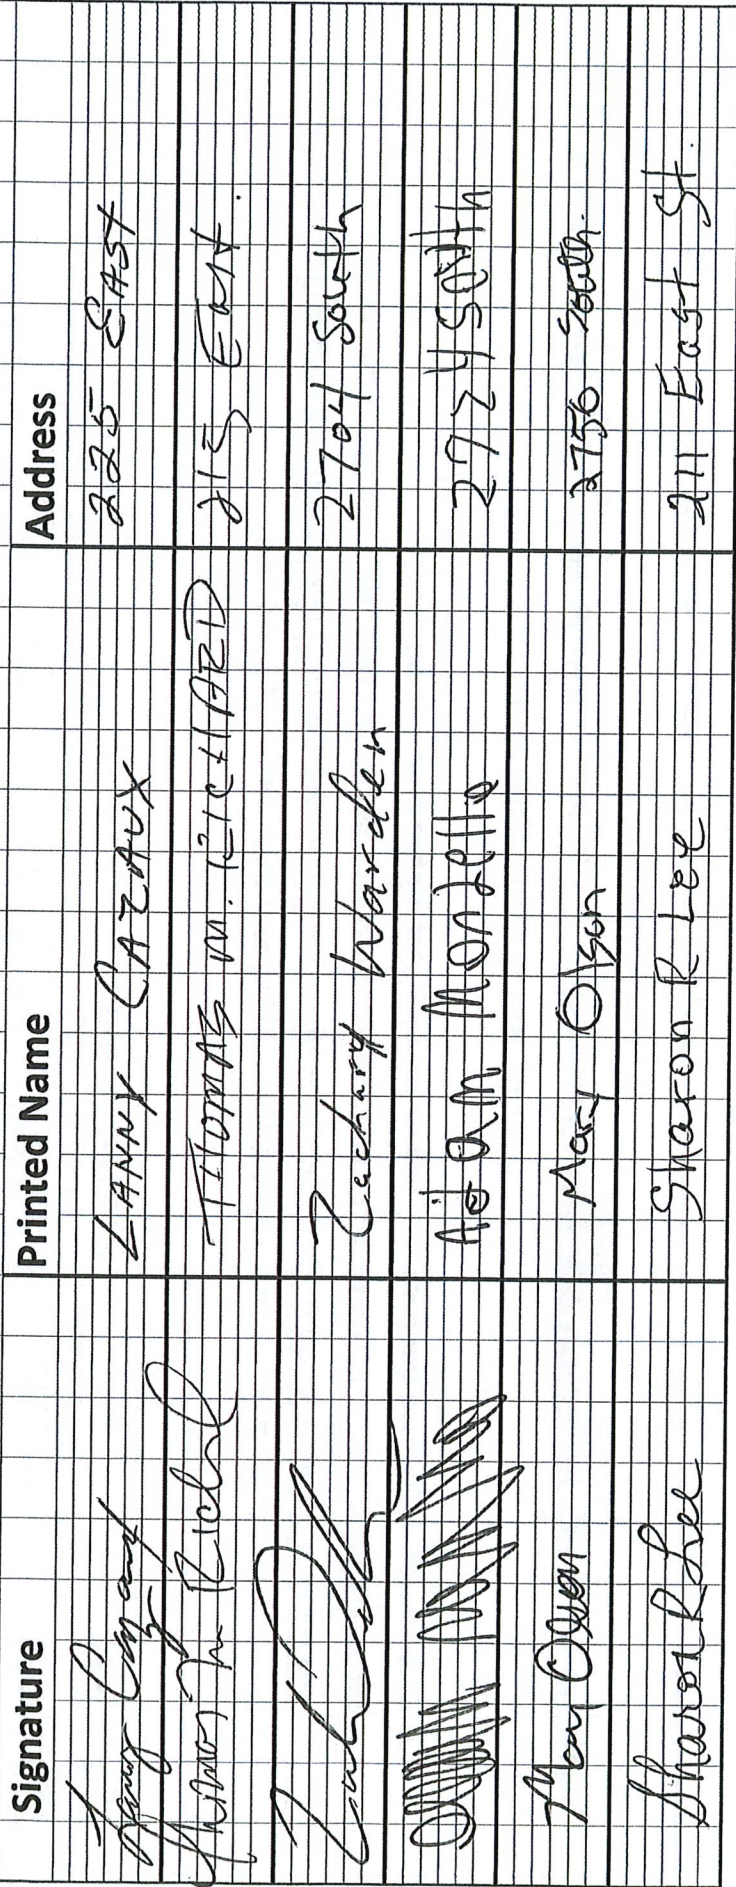 Signature Printed Name Address
Lanny Cazaux LANNY CAZAUX 225 EAST
Thomas M Richard THOMAS M. RICHARD 215 East.
Zachary Warden 2704 South
Adam Monzello 2724 South
Mary Olson Mary Olson 2756 South.
Sharon R Lee Sharon R Lee 211 East St.